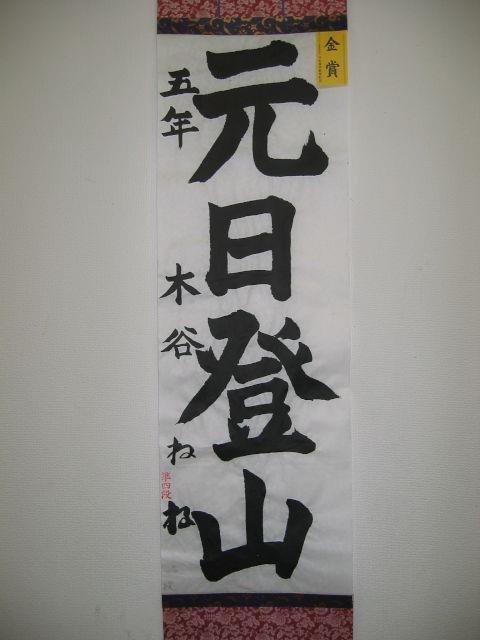 金賞
元日登山
五年 木谷 ねね
準四段